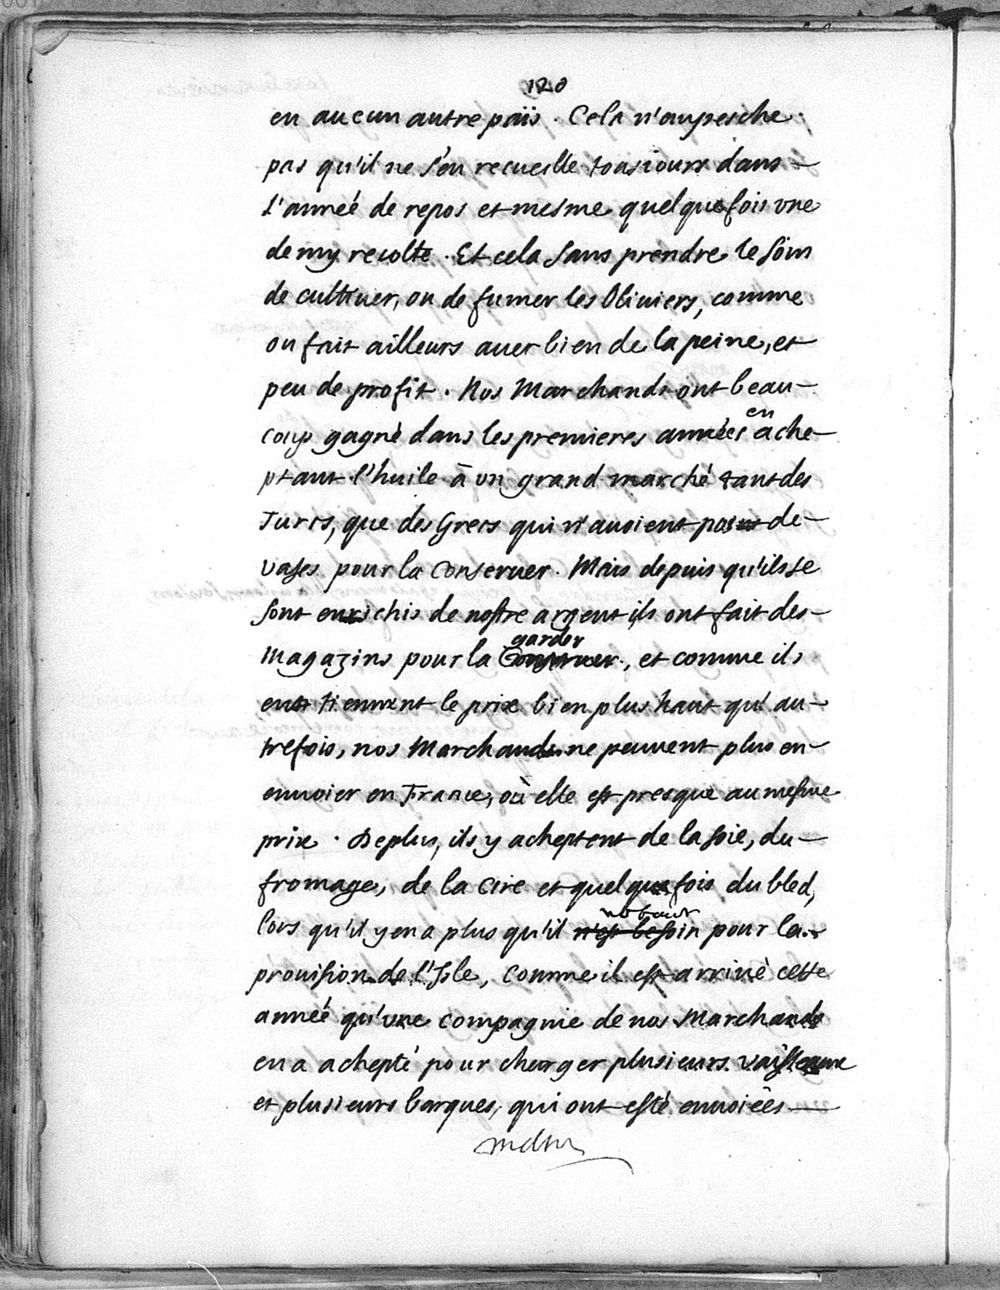 120
en aucun autre païs. Cela n'anpesche
pas qu'il ne s'en recueille tousiours dans
l'anneé de repos et mesme quelque fois vne
demy recolte. Et cela sans prendre le soin
de cultiuer, ou de fumer les Oliuiers, comme
on fait ailleurs auec bien de la peine, et
peu de profit. Nos Marchands ont beau-
coup gagné dans les premieres années en ache-
ptant l'huile à vn grand marché tant des
Turcs, que des Grecs qui n'auoient pas de
vases pour la conseruer. Mais depuis qu'ils se
sont enrichis de nostre argent ils ont fait des
Magazins pour la garder, et comme ils
entretiennent le prix bien plus haut qu'au-
trefois, nos Marchands ne peuuent plus en
enuoier en France, où elle est presque au mesme
prix. De plus, ils y acheptent de la soie, du
fromage, de la cire et quelque fois du bled,
lors qu'il y en a plus qu'il ne faut pour la
prouision de l'Isle, comme il est arriué cette
anneé qu'vne compagnie de nos Marchands
en a achepté pour charger plusieurs vaisseaux
et plusieurs barques, qui ont esté enuoiées